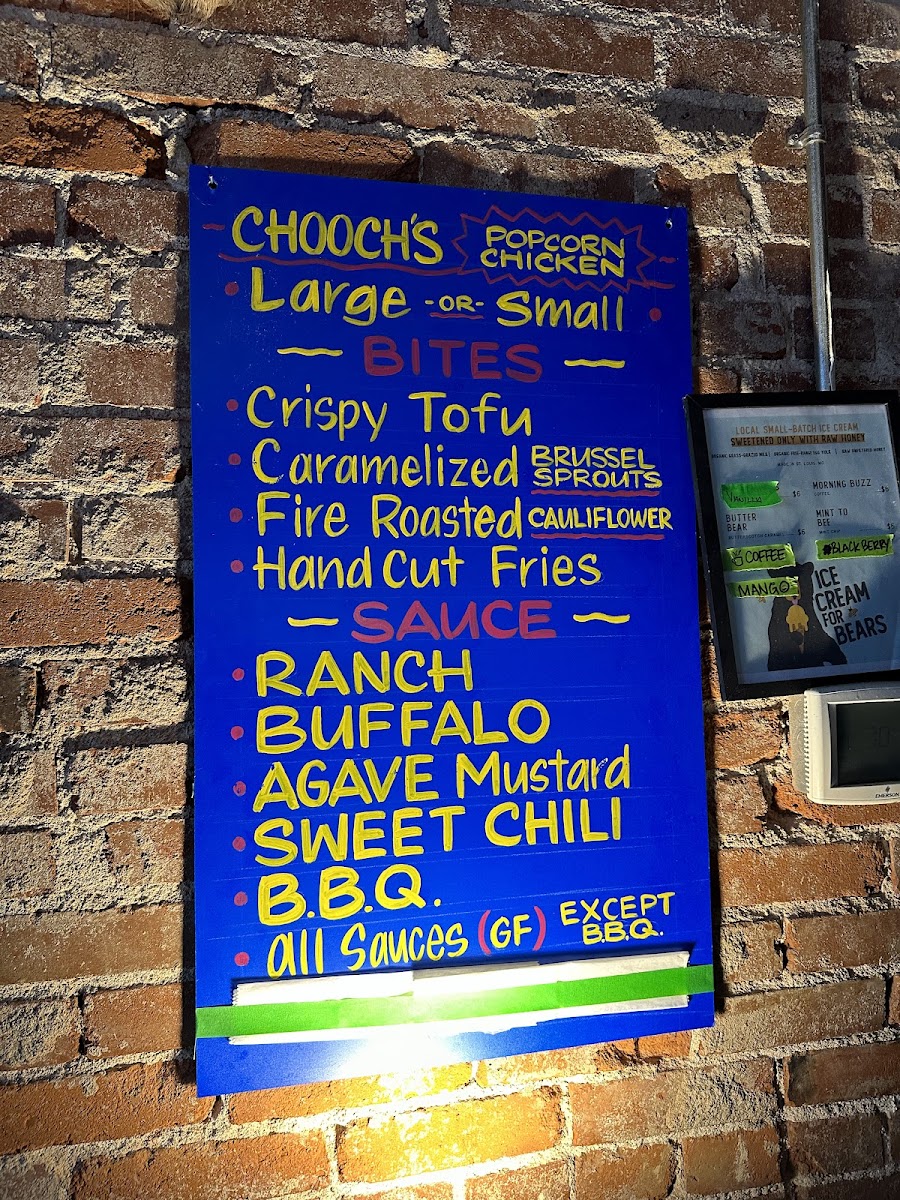 CHOOCH'S POPCORN CHICKEN
Large -OR- Small
BITES
Crispy Tofu
Caramelized BRUSSEL SPROUTS
Fire Roasted CAULIFLOWER
Hand Cut Fries
SAUCE
RANCH
BUFFALO
AGAVE Mustard
SWEET CHILI
B.B.Q.
all Sauces (GF) EXCEPT B.B.Q.
LOCAL SMALL-BATCH ICE CREAM
SWEETENED ONLY WITH RAW HONEY
VANILLA $6
MORNING BUZZ $6
COFFEE
BUTTER BEAR $6
MINT TO BEE $6
COFFEE
BLACKBERRY
MANGO
ICE
CREAM
FOR
BEARS
EMERSON